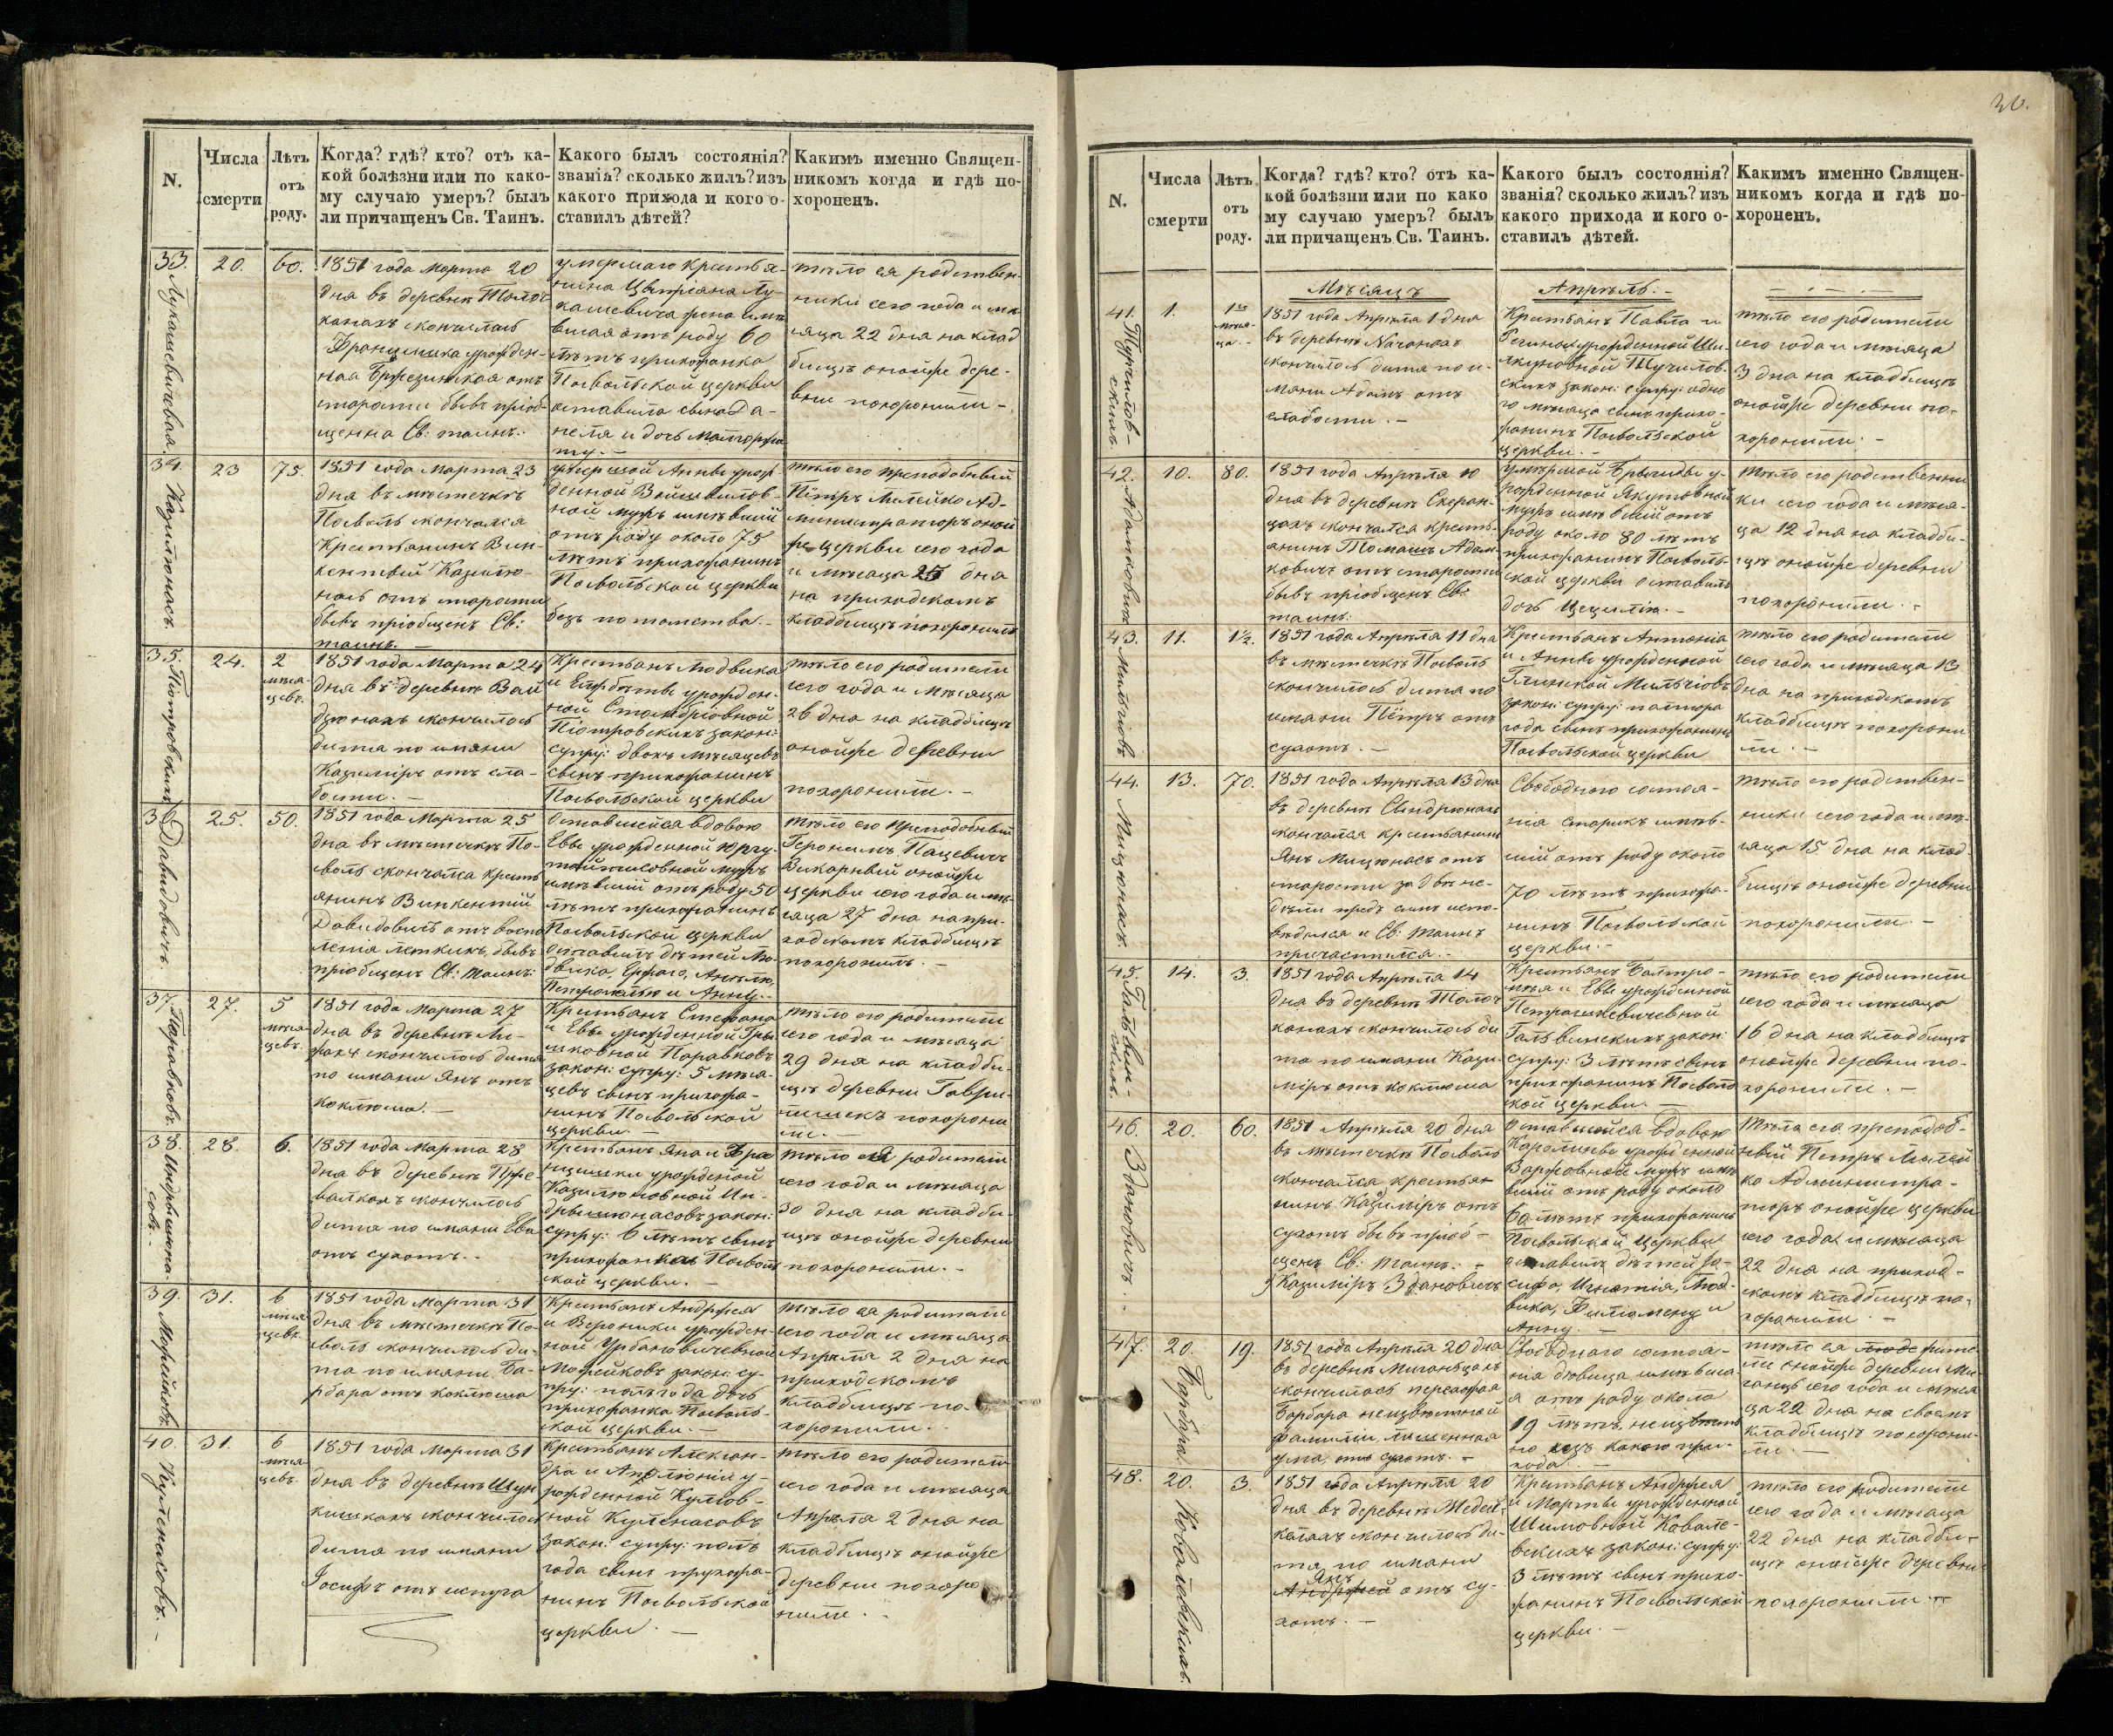 N.
Числа
смерти
Лѣтъ
отъ
роду.
Когда? гдѣ? кто? отъ ка-
кой болѣзни или по како-
му случаю умеръ? былъ
ли причащенъ Св. Таинъ.
Какого былъ состоянія?
званія? сколько жилъ? изъ
какого прихода и кого о-
ставилъ дѣтей?
Какимъ именно Священ-
никомъ когда и гдѣ по-
хороненъ.
33.
Лукашевичевая.
20.
60.
1851 года Марта 20
дня въ деревнѣ Толоч
канахъ скончалась
Францишка урожден-
ная Бржезинская отъ
старости бывъ пріоб-
щенна Св: таинъ.
умершаго Крестья-
нина Ципріяна Лу-
кашевича жена имѣ
вшая отъ роду 60
лѣтъ прихожанка
Посвольской церкви
оставила сына Да-
неля и дочь Малгоржа
ту. –
тѣло ея родствен-
ники сего года и мѣ
сяца 22 дня на клад
бищѣ онойже дере-
вни похоронили –
34.
Казилюнасъ.
23
75.
1851 года Марта 23
дня въ мѣстечкѣ
Посволь скончался
Крестьянинъ Вин-
кентій Казилю-
насъ отъ старости
бывъ пріобщенъ Св:
таинъ. –
умершой Анны урож
денной Войшвилов-
ной мужъ имѣвшій
отъ роду около 75
лѣтъ прихожанинъ
Посвольской церкви
безъ потомства. –
тѣло его преподобный
Пётръ Милейко Ад-
министраторъ оной
же церкви сего года
и мѣсяца 25 дня
на приходскомъ
кладбищѣ похоронилъ
35.
Піотровскихъ
24.
2
мѣся-
цевъ.
1851 года Марта 24
дня въ деревнѣ Вай
дзюнахъ скончилось
дитя по имяни
Казиміръ отъ сла-
бости. –
Крестьянъ Людвика
и Елжбѣты урожден-
ной Стамбріовной
Піотровскихъ закон:
супру: двохъ мѣсяцевъ
сынъ прихожанинъ
Посвольской церкви
тѣло его родители
сего года и мѣсяца
26 дня на кладбищѣ
онойже деревни
похоронили. –
36.
Давидовичъ.
25.
50.
1851 года Марта 25
дня въ мѣстечкѣ По-
сволѣ скончался Кресть
янинъ Винкентій
Давидовичъ отъ воспа
ленія легкихъ, бывъ
пріобщенъ Св: Таинъ.
Оставшейся вдовою
Евы урожденной Юргу-
тайтисовной мужъ
имѣвшій отъ роду 50
лѣтъ прихожанинъ
Посвольской церкви
оставилъ дѣтей Лю-
двика, Ержаго, Анелю,
Петронелю и Анну. –
тѣло его преподобный
Геронимъ Пацевичъ
Викарный онойже
церкви сего года и мѣ-
сяца 27 дня на при-
ходскомъ кладбищѣ
похоронилъ. –
37.
Паравковъ.
27.
5
мѣся-
цевъ.
1851 года Марта 27
дня въ деревнѣ Ли-
пахъ скончилось дитя
по имяни Янъ отъ
коклюша. –
Крестьянъ Стефана
и Евы урожденной Гри
шковной Паравковъ
закон: супру: 5 мѣся-
цевъ сынъ прихожа-
нинъ Посвольской
церкви.
тѣло его родители
сего года и мѣсяца
29 дня на кладби-
щѣ деревни Гаври-
лишекъ похорони
ли.
38.
28.
6.
1851 года Марта 28
дня въ деревнѣ Пже-
валкахъ скончилось
дитя по имяни Ева
отъ сухотъ. –
Крестьянъ Яна и Фра
нцишки урожденной
Казилюновной Ин-
дрышонасовъ закон:
супру: 6 лѣтъ
прихожанка Посволь
ской церкви. –
тѣло ея родители
сего года и мѣсяца
30 дня на кладби-
щѣ онойже деревни
похоронили. –
39.
Можейковъ.
31.
6
мѣся-
цевъ
1851 года Марта 31
дня въ мѣстечкѣ По-
сволѣ скончилось ди-
тя по имяни Ба-
рбара отъ коклюша
Крестьянъ Андржея
и Вероники урожден-
ной Урбановичевной
Можейковъ закон: су-
пру: полъ года дочь
прихожанка Посволь-
ской церкви. –
тѣло ея родители
сего года и мѣсяца
Апрѣля 2 дня на
приходскомъ
кладбищѣ по-
хоронили.
40.
Куленасовъ. –
31.
6
мѣся-
цевъ.
1851 года Марта 31
дня въ деревнѣ Шун
кишкахъ скончилось
дитя по имяни
Іосифъ отъ испуга
Крестьянъ Алексан-
дра и Аполюніи у-
рожденной Кулов-
ной Куленасовъ
закон: супру: полъ
года сынъ прихожа-
нинъ Посвольской
церкви. –
тѣло его родители
сего года и мѣсяца
Апрѣля 2 дня на
кладбищѣ онойже
деревни похоро
нили. –
30.
N.
Числа
смерти
Лѣтъ
отъ
роду.
Когда? гдѣ? кто? отъ ка-
кой болѣзни или по како
му случаю умеръ? былъ
ли причащенъ Св. Таинъ.
Какого былъ состоянія?
званія? сколько жилъ? изъ
какого прихода и кого о-
ставилъ дѣтей.
Какимъ именно Священ-
никомъ когда и гдѣ по-
хороненъ.
Мѣсяцъ
Апрѣль. –
41.
Тучилов-
скихъ.
1.
1го
мѣся-
ца. –
1851 года Апрѣля 1 дня
въ деревнѣ
скончилось дитя по и-
мяни Адамъ отъ
слабости. –
Крестьянъ Павла и
Регины урожденной Ши-
Тучилов-
скихъ закон: супру: одно
го мѣсяца сынъ прихо-
жанинъ Посвольской
церкви. –
тѣло его родители
сего года и мѣсяца
3 дня на кладбищѣ
онойже деревни по-
хоронили. –
42.
Адамковичъ
10.
80.
1851 года Апрѣля 10
дня въ деревнѣ
цахъ скончался кресть-
янинъ Томашъ Адам-
ковичъ отъ старости
бывъ пріобщенъ Св:
таинъ.
умершой Брыгиды у-
рожденной Якутовной
мужъ имѣвшій отъ
роду около 80 лѣтъ
прихожанинъ Посволь-
ской церкви оставилъ
дочь Цецилію. –
тѣло его родственни
ки сего года и мѣся-
ца 12 дня на кладби-
щѣ онойже деревни
похоронили. –
43.
Мильчіовъ
11.
1½.
1851 года Апрѣля 11 дня
въ мѣстечкѣ Посволь
скончилось дитя по
имяни Пётръ отъ
сухотъ. –
Крестьянъ Антонія
и Анны урожденной
Глинской Мильчіовъ
закон: супру: полтора
года сынъ прихожанинъ
Посвольской церкви
тѣло его родители
сего года и мѣсяца 13
дня на приходскомъ
кладбищѣ похорони
ли. –
44.
Мицюнасъ
13.
70.
1851 года Апрѣля 13 дня
въ деревнѣ Свиндрюнахъ
скончался крестьянинъ
Янъ Мицюнасъ отъ
старости за двѣ не-
дѣли предъ симъ испо-
вѣдался и Св: таинъ
причастился. –
Свободного состоя-
нія старикъ имѣв-
шій отъ роду около
70 лѣтъ прихожа-
нинъ Посвольской
церкви. –
тѣло его родствен-
ники сего года и мѣ-
сяца 15 дня на клад-
бищѣ онойже деревни
похоронили –
45.
Гальвин-
скихъ.
14.
3.
1851 года Апрѣля 14
дня въ деревнѣ Толоч
канахъ скончилось ди
тя по имяни Кази-
міръ отъ коклюша
Крестьянъ Балтро-
мѣя и Евы урожденной
Петрашкевичевной
Гальвинскихъ закон:
супру: 3 лѣтъ сынъ
прихожанинъ Посволь
ской церкви. –
тѣло его родители
сего года и мѣсяца
16 дня на кладбищѣ
онойже деревни по-
хоронили. –
46.
Здановичъ.
20.
60.
1851 Апрѣля 20 дня
въ мѣстечкѣ Посволь
скончался крестья
нинъ Казиміръ отъ
сухотъ бывъ пріоб-
щенъ Св: Таинъ. –
Казиміръ Здановичъ
Оставшойся вдовою
Каролины урожденной
Варжовной мужъ имѣ
вшій отъ роду около
60 лѣтъ прихожанинъ
Посвольской церкви
оставилъ дѣтей Іо-
сифа, Игнатія, Люд-
вика, Филіомену и
Анну. –
Тѣло его преподоб-
ный Петръ Милей
ко Администра-
торъ онойже церкви
сего года и мѣсяца
22 дня на приход-
скомъ кладбищѣ по-
хоронили –
47.
Барбара.
20.
19.
1851 года Апрѣля 20 дня
въ деревнѣ Мичанцахъ
скончилась
Барбара неизвѣстной
фамиліи, лишенная
ума, отъ сухотъ. –
Свободнаго состоя-
нія дѣвица имѣвша
я отъ роду около
19 лѣтъ, неизвѣст
но изъ какого при-
хода. –
тѣло ея
ли онойже деревни Ми
чанцъ сего года и мѣся
ца 22 дня на своемъ
кладбищѣ похорони-
ли. –
48.
Ковалевскихъ.
20.
3.
1851 года Апрѣля 20
дня въ деревнѣ Медей-
скончилось ди-
тя по имяни
Янъ
Андржей отъ су-
хотъ. –
Крестьянъ Андржея
и Марты урожденной
Шимовной Ковале-
вскихъ закон: супру:
3 лѣтъ сынъ прихо-
жанинъ Посвольской
церкви. –
тѣло его родители
сего года и мѣсяца
22 дня на кладби-
щѣ онойже деревни
похоронили. –